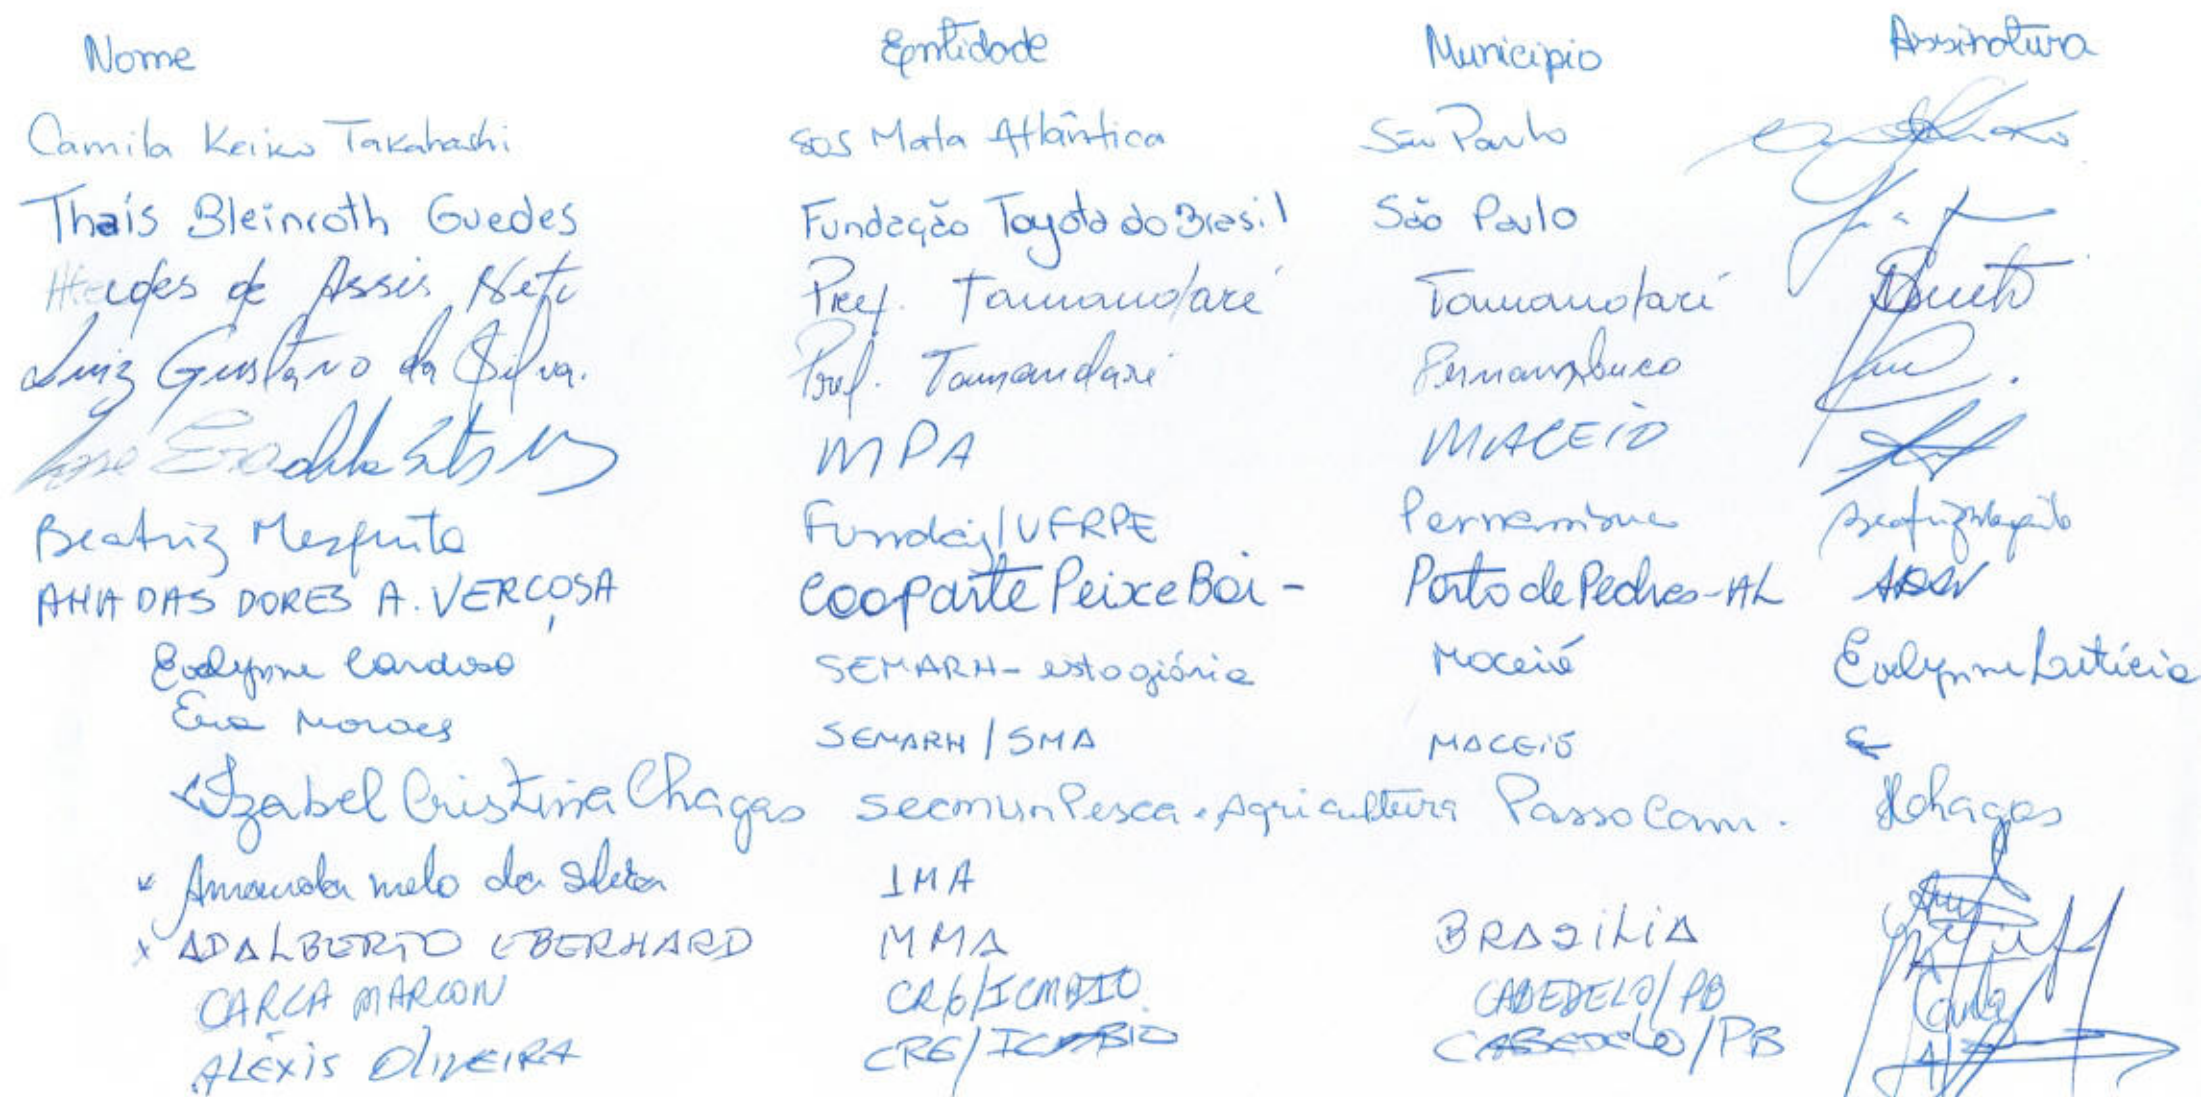 Nome Entidade Município Assinatura
Camila Keiko Takahashi SOS Mata Atlântica São Paulo
Thaís Bleinroth Guedes Fundação Toyota do Brasil São Paulo
de Assis Neto Pref. Tamandaré Tamandaré
Luiz Gustavo da Silva. Pref. Tamandaré Pernambuco
José MPA MACEIÓ
Beatriz Mesquita Fundaj/UFRPE Pernambuco Beatriz Mesquita
ANA DAS DORES A. VERÇOSA Cooparte Peixe Boi - Porto de Pedras-AL
Evelynne Cardoso SEMARH- estagiária Maceió Evelynne Letícia
Moraes SEMARH / SMA MACEIÓ
Izabel Cristina Chagas Secmun Pesca e Agricultura Passo Cam. Chagas
x Amanda melo da IMA
x ADALBERTO EBERHARD MMA BRASILIA
CARLA MARCON CR6/ICMBIO CABEDELO/PB Carla
ALEXIS OLIVEIRA CR6/ICMBIO CABEDELO/PB